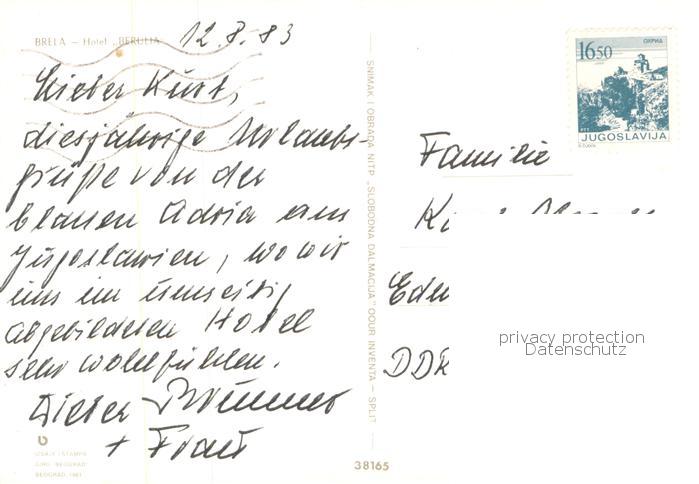 BRELA — Hotel „BERULIA"
12.8.83
Lieber Kurt,
diesjährige Urlaubs-
grüße von der
blauen Adria aus
Jugoslawien, wo wir
uns im umseitig
abgebildeten Hotel
sehr wohlfühlen.
Dieter
+ Frau
IZDAJE I ŠTAMPA
BEOGRAD, 1981
SNIMAK I OBRADA NITP „SLOBODNA DALMACIJA" OOUR INVENTA — SPLIT
38165
16.50
ОХРИД
JUGOSLAVIJA
Familie
DDR
privacy protection
Datenschutz